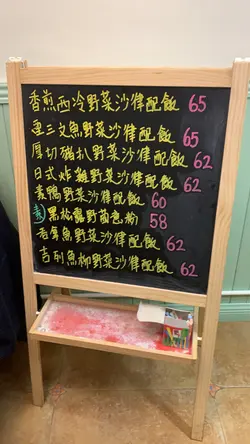 香煎西冷野菜沙律配飯 65
三文魚野菜沙律配飯 65
厚切豬扒野菜沙律配飯 62
日式炸雞野菜沙律配飯 62
野菜沙律配飯 60
素 黑松露野菌意粉 58
魚野菜沙律配飯 62
吉列魚柳野菜沙律配飯 62